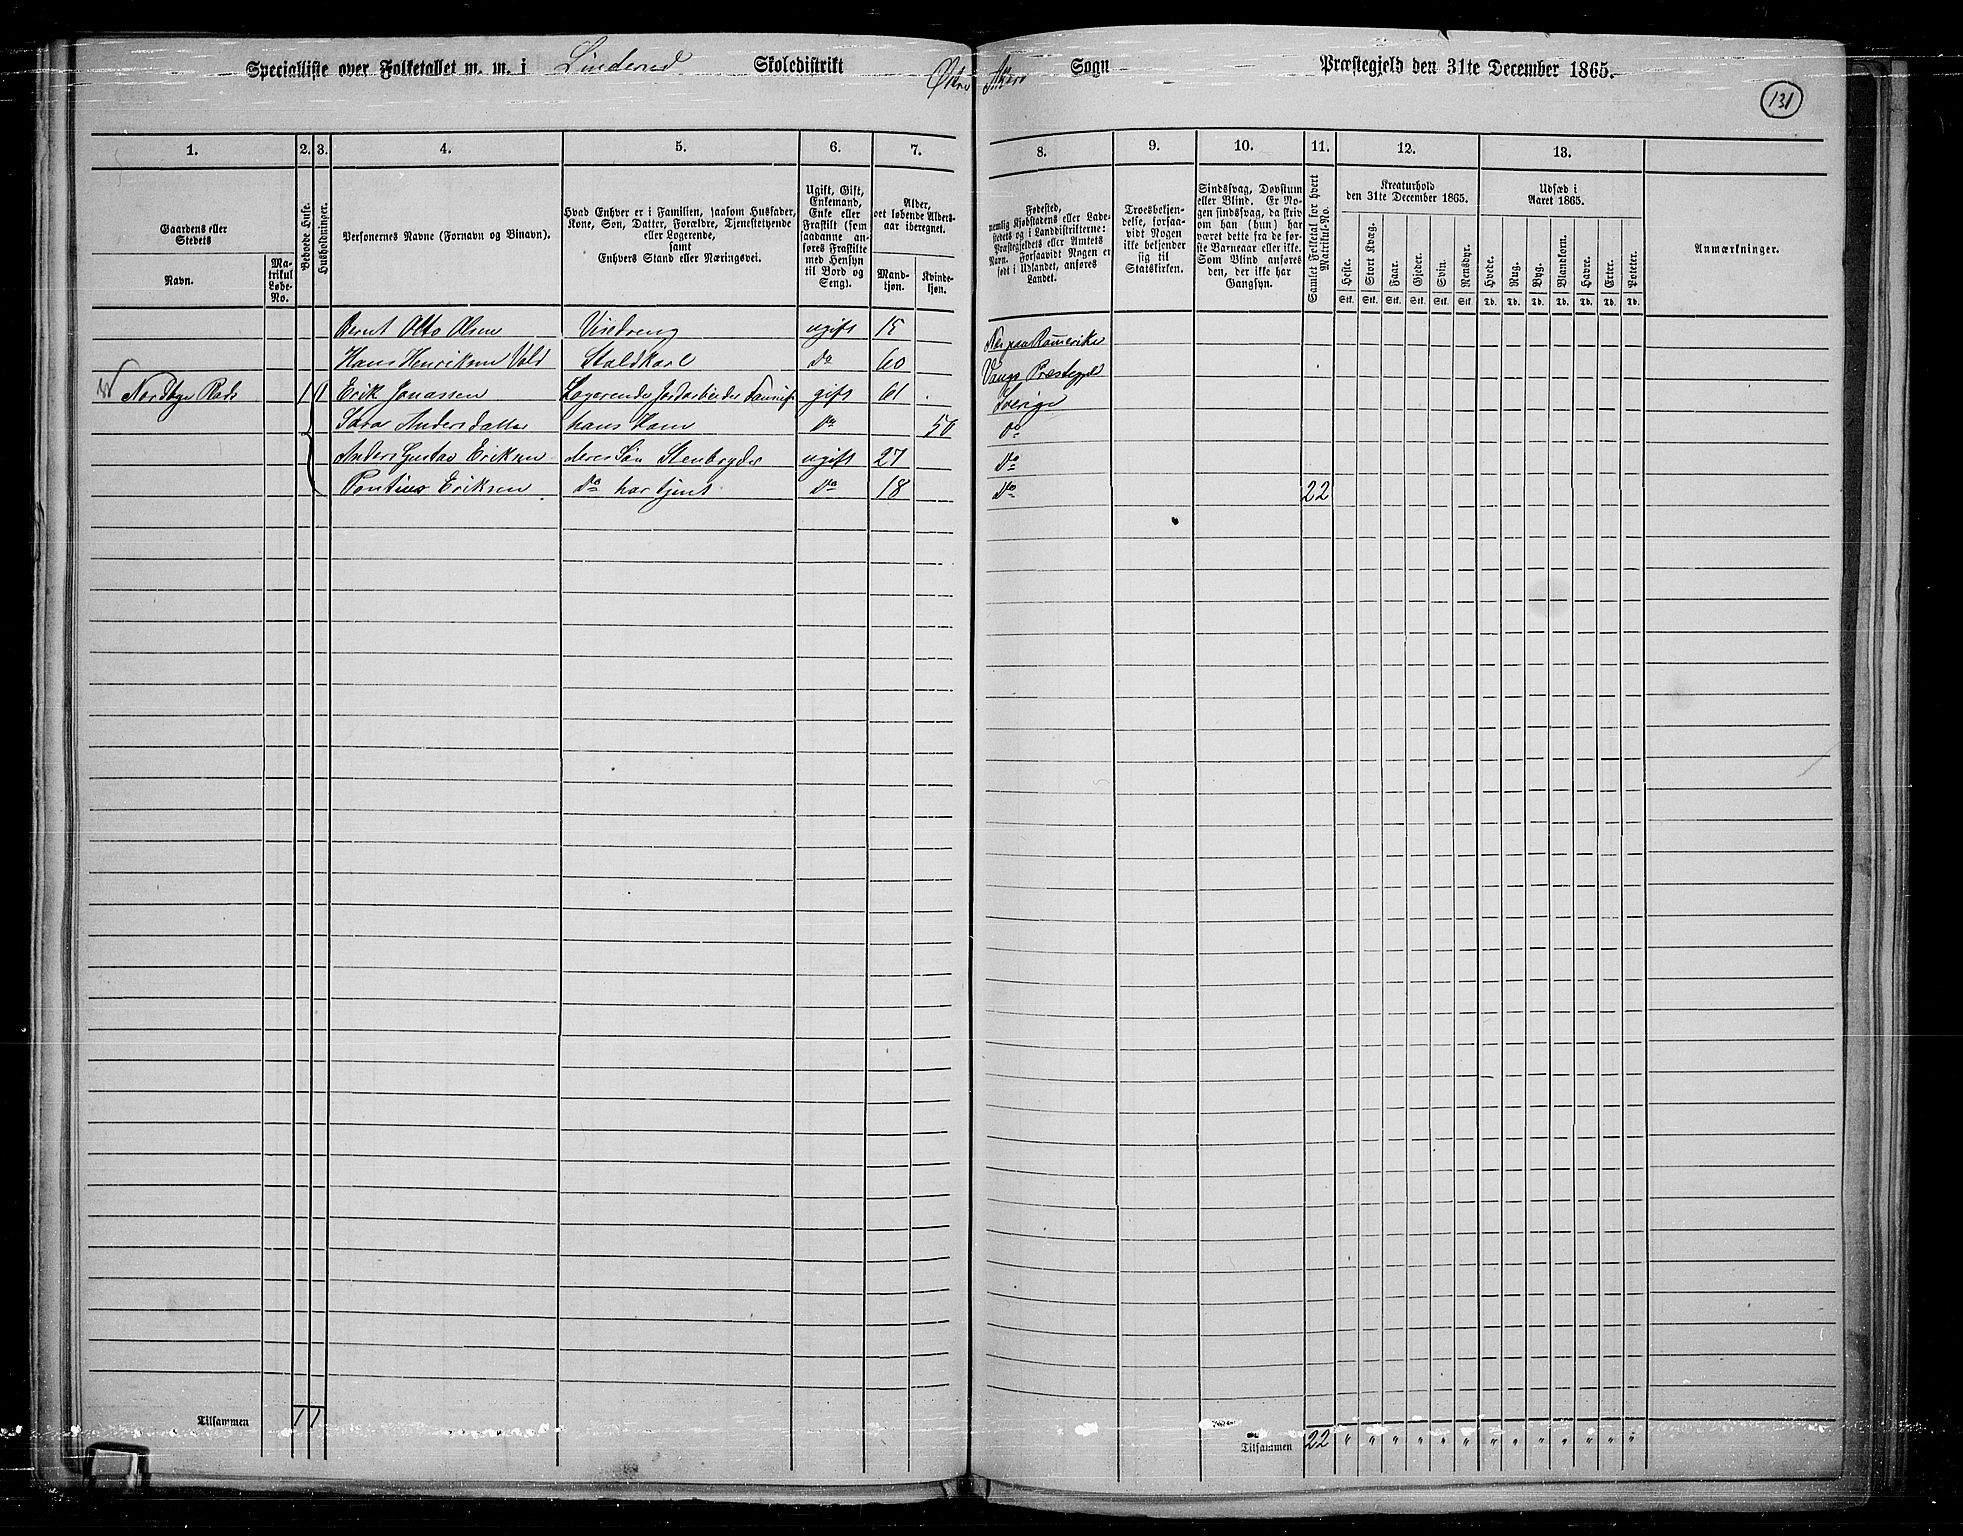 Specialliste over Folketallet m. m. i Linderud Skoledistrikt Østre Akers Sogn Præstegjeld den 31te December 1865.
131
1. 2. 3. 4. 5. 6. 7. 8. 9. 10. 11. 12. 13.
Gaardens eller Stedets
Navn.
Matrikul Løbe-No.
Beboede Huse.
Husholdninger.
Personernes Navne (Fornavn og Binavn).
Hvad Enhver er i Familien, saasom Husfader, Kone, Søn, Datter, Forældre, Tjenestetyende eller Logerende,
samt
Enhvers Stand eller Næringsvei.
Ugift, Gift, Enkemand, Enke eller Fraskilt (som saadanne anføres Fraskilte med Hensyn til Bord og Seng).
Alder, det løbende Alders-aar iberegnet.
Mand-kjøn.
Kvinde-kjøn.
Fødested, nemlig Kjøbstadens eller Ladestedets og i Landdistrikterne: Præstegjeldets eller Amtets Navn. Forsaavidt Nogen er født i Udlandet, anføres Landet.
Troesbekjendelse, forsaavidt Nogen ikke bekjender sig til Statskirken.
Sindssvag, Døvstum eller Blind. Er Nogen sindssvag, da skriv om han (hun) har været dette fra de første Barneaar eller ikke. Som Blind anføres den, der ikke har Gangsyn.
Samlet Folketal for hvert Matrikul-No.
Kreaturhold den 31te December 1865.
Heste. Stort Kvæg. Faar. Gjeder. Svin. Rensdyr.
Stk. Stk. Stk. Stk. Stk. Stk.
Udsæd i Aaret 1865.
Hvede. Rug. Byg. Blandkorn. Havre. Erter. Poteter.
Td. Td. Td. Td. Td. Td. Td.
Anmærkninger.
Bernt Otto Olsen Visedreng ugift 15 Næs paa Romerike
Hans Henriksen Vold Staldkarl do 60 Vangs Præstegjeld
Nordbye Rods 1 1 Erik Jonassen Logerende Jordarbeider gift 61 Sverige
Sara Andersdatter hans Kone do 50 do
Anders Gustav Eriksen deres Søn Stenbryder ugift 27 do
Pontius Eriksen do har tjent do 18 do 22
Tilsammen 1 1
Tilsammen 22 " " " " " " " " " " " " "